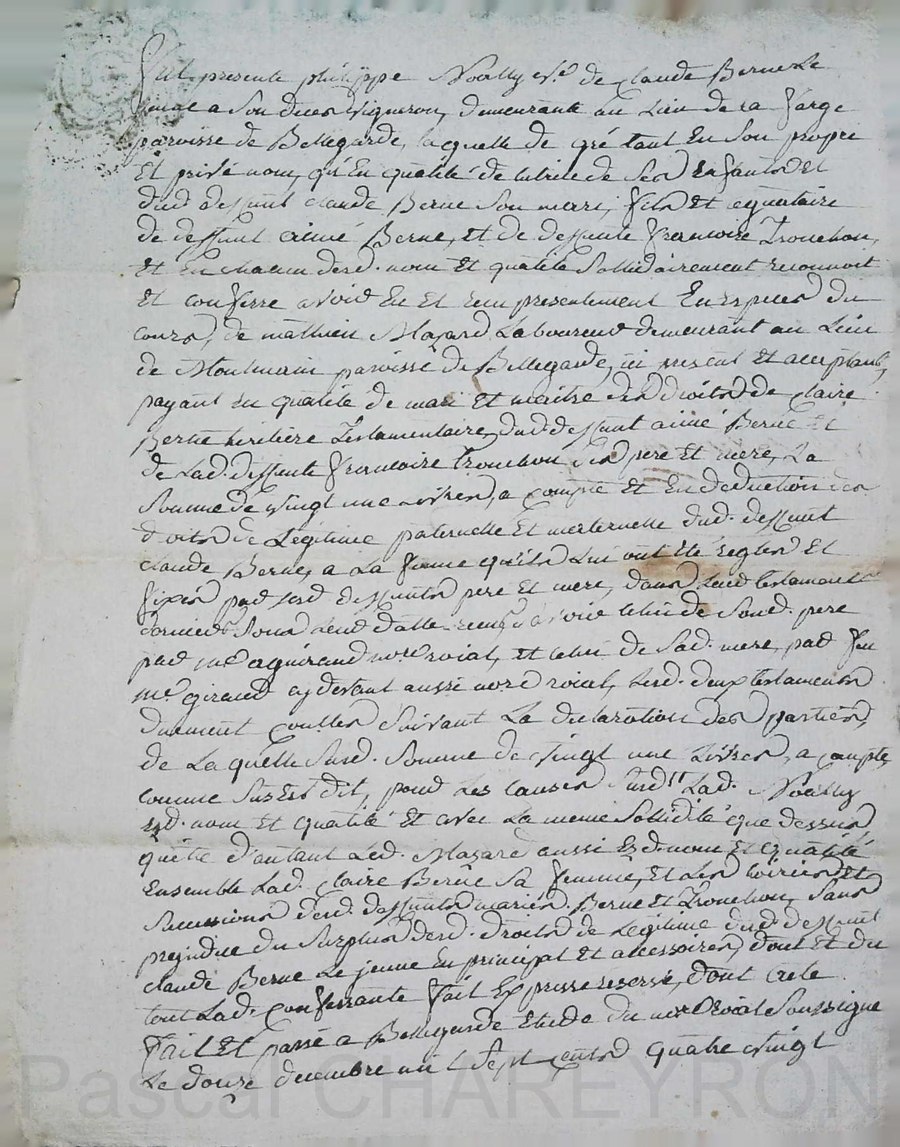 Fut presente philippe Noailly v.e de claude Berne le
jeune a son deces vigneron, demeurante au lieu de la farge
paroisse de Bellegarde, laquelle de gré tant en son propre
et privé nom, qu'en qualité de tutrice de ses enfants et
dud. deffunt claude Berne son mari, fils et légataire
de deffunt aimé Berne, et de deffunte francoise Tronchon,
et en chacun desd. nom et qualité sollidairement reconnoit
et confesse avoir eu et recu presentement en espèces du
cours, de mathieu Mazard laboureur demeurant au lieu
de Montmain paroisse de Bellegarde, ici present et acceptant,
payant en qualité de mari et maitre des droits de claire
Berne héritière testamentaire dud. deffunt aimé Berne et
de lad. deffunte francoise tronchon ses pere et mere, la
somme de vingt une livres, a compte et en déduction des
droits de legitime paternelle et maternelle dud. deffunt
claude Berne, a la forme qu'ils lui ont été réglés et
fixés par lesd. deffunts pere et mere, dans leurs testaments
derniers sous leur datte recus, savoir celui de sond. pere
par me aguiraud nore roial, et celui de sad. mere, par feu
me giraud cy devant aussi nore roial, lesd. deux testaments
duement controllés suivant la déclaration des parties,
de laquelle susd. somme de vingt une livres, a compte
comme sus est dit, pour les causes susd.tes lad. Noailly
esd. nom et qualité et avec la meme sollidité que dessus
quitte d'autant led. Mazard aussi esd. nom et qualité
ensemble lad. claire Berne sa femme, et les hoiries et
successions desd. deffunts mariés Berne et Tronchon, sans
prejudice du surplus desd. droits de legitime dud. deffunt
claude Berne le jeune en principal et accessoires, dont et du
tout lad. confessante fait expresse reserve, dont acte
fait et passé a Bellegarde étude du nore roial soussigné
le douze decembre mil sept cents quatre vingt
Pascal CHAREYRON